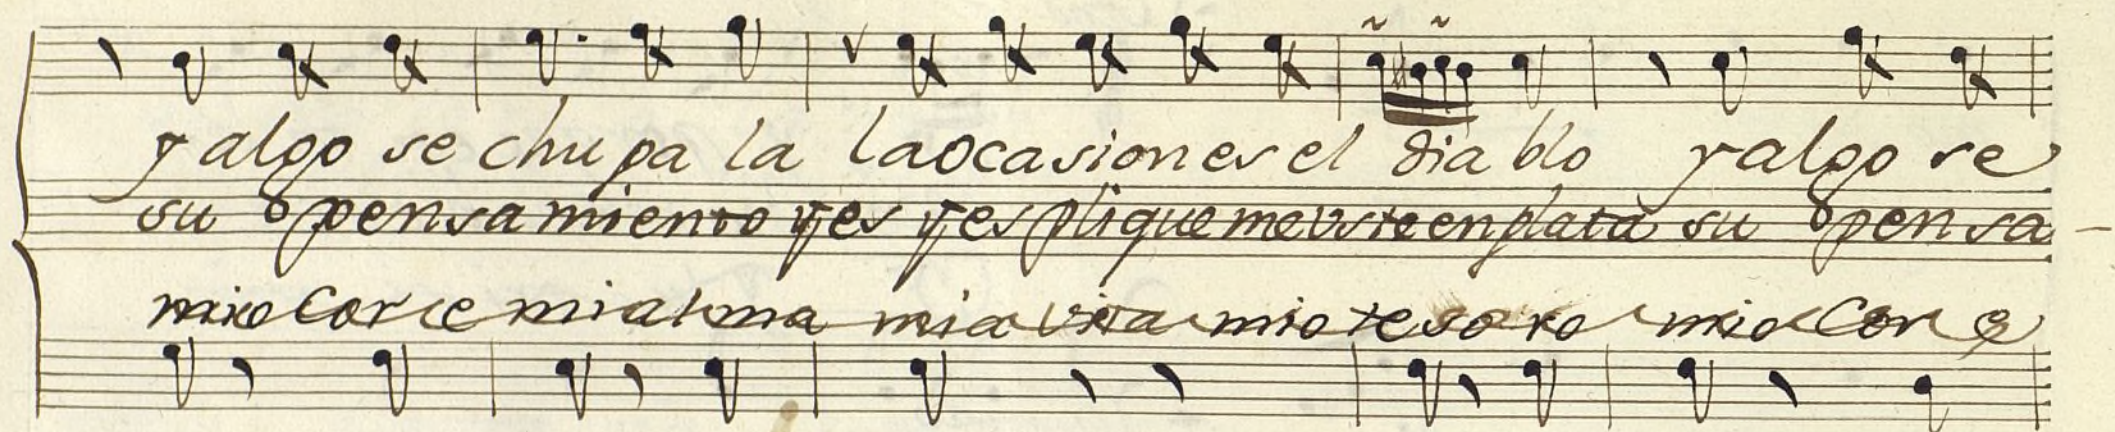 y algo se chupa la laocasion es el dia blo y algo se
su pensamiento y es y esplique me uste en plata su pensa
mio Core mi alma mia vita mio tesoro mio Core